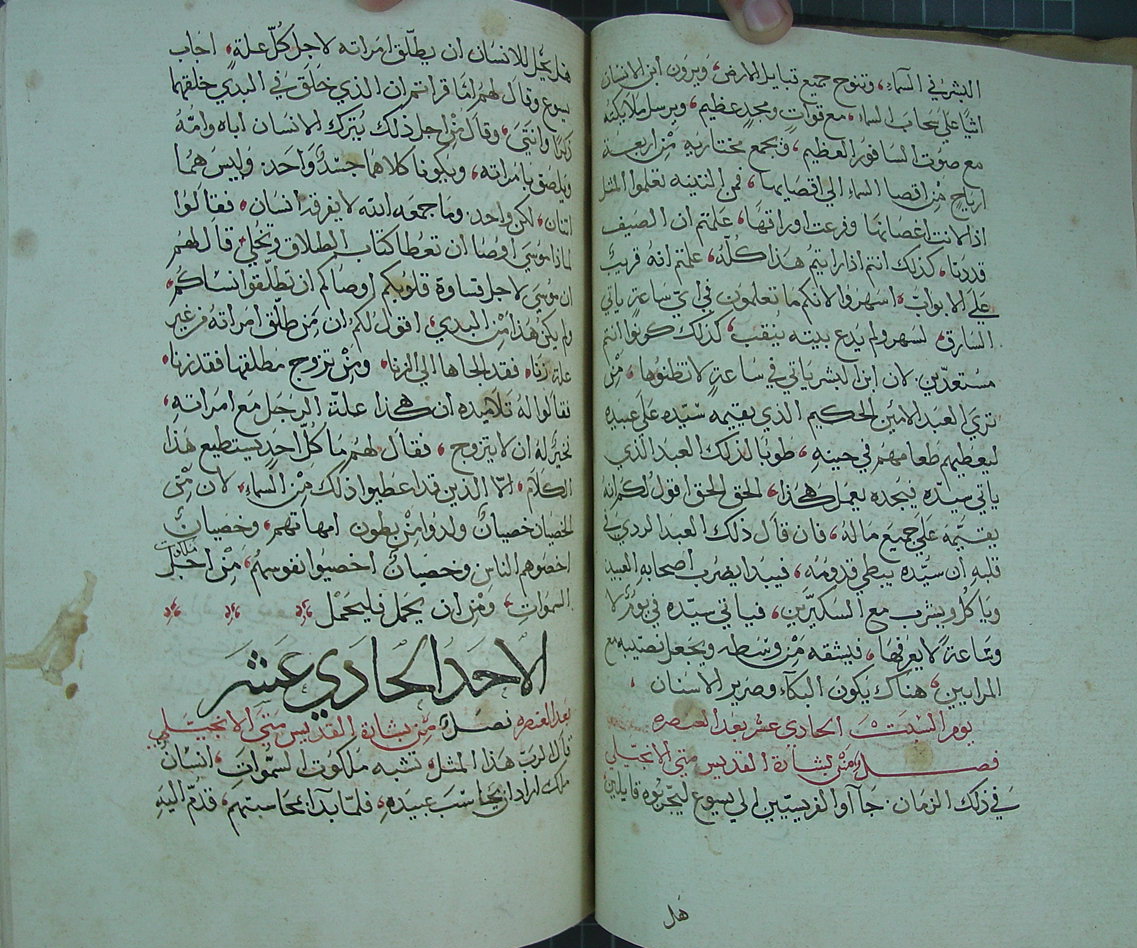 البشر في السماء، وتنوح جميع قبايل الارض، ويرون ابن الانسان
اتيًا على سحاب السماء، مع قواتٍ ومجدٍ عظيم، ويرسل ملايكته
مع صوت السافور العظيم، فيجمع مختاريه مِنْ اربعة
ارياح مِنْ اقصا السماء الى اقصايها، فمن التينه تعلموا المثل
اذا لانت اغصانها وفرعت اوراقها، علمتم ان الصيف
قد دنا، كذلك انتم اذا رايتم هذا كلّه، علمتم انه قريبٌ
على الابواب، اسهروا لانكم ما تعلمون في اي ساعةٍ ياتي
السارق، لسهر ولم يدع بيته ينقب، كذلك كونوا انتم
مستعدّين لان ابن البشر ياتي في ساعةٍ لا تظنوها، مَنْ
ترى العبد الامين الحكيم الذي يقيمه سيّده على عبيده
ليعطيهم طعامهم في حينه، طوبا لذلك العبد الذي
ياتي سيّده فيجده يعمل هكذا، الحق الحق اقول لكم انه
يقيّمه على جميع ماله، فان قال ذلك العبد الردي في
قلبه ان سيّده يبطي قدومه، فيبدا يضرب اصحابه العبيد
وياكل ويشرب مع السكيرين، فياتي سيّده في يومٍ لا
وساعة لا يعرفها، فيشقه مِنْ وسطه ويجعل نصيبه مع
المرايين، هناك يكون البكاء وصرير الاسنان
يوم السبت الحادي عشر بعد العنصره
فصـــل مِنْ بشارة القديس متى الانجيلي
في ذلك الزمان، جاآوا الفريسيّين الى يسوع ليجربوه قايلين
هل
هل يحل للانسان ان يطلّق امراته لاجل كلّ علةٍ، اجاب
يسوع وقال لهم اما قراتم ان الذي خلق في البدي خلقهما
ذكرًا وانثى، وقال مِنْ اجل ذلك يترك الانسان اباه وامّه
ويلصق بامراته، ويكونا كلاهما جسدٌ واحد، وليس هما
اثنان، لكن واحد، وما جمعه الله لا يفرقه انسان، فقالوا
لماذا موسى اوصا ان تعطا كتاب الطلاق وتخلي، قال لهم
ان موسى لاجل قساوة قلوبكم اوصاكم ان تطلقوا نساكم
ولم يكن هذا من البدي، اقول لكم ان مَن طلّق امراته من غير
علة زنا، فقد الجاها الى الزنا، ومَنْ تزوج مطلقها فقد زنا
فقالوا له تلاميذه ان هكذا علّة الرجل مع امراته،
فخيرٌ له ان لا يتزوج، فقال لهم ما كلّ احدٍ يستطيع هذا
الكلام، الّا الذين قد اعطيوا ذلك مِنَ السماء، لان مِنَ
الخصيان خصيانٌ ولدوا مِنْ بطون امهاتهم، وخصيانٌ
اخصوهم الناس وخصيانٌ اخصيوا نفوسهم، مِنْ اجل ملكوت
السموات، ومَنْ ان يحمل فليحمل
الاحد الحادي عشر
بعد العنصره فصـــل مِنْ بشارة القديس متى الانجيلي
قال الرب هذا المثل، تشبه ملكوت السموات، انسانٌ
ملك اراد ان يحاسب عبيده، فلمّا بدا بمحاسبتهم، قدّم اليه